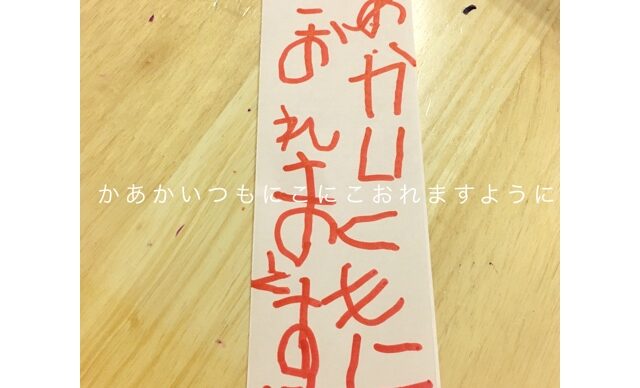 あかいつもに
こおれます
かあかいつもにこにこおれますように